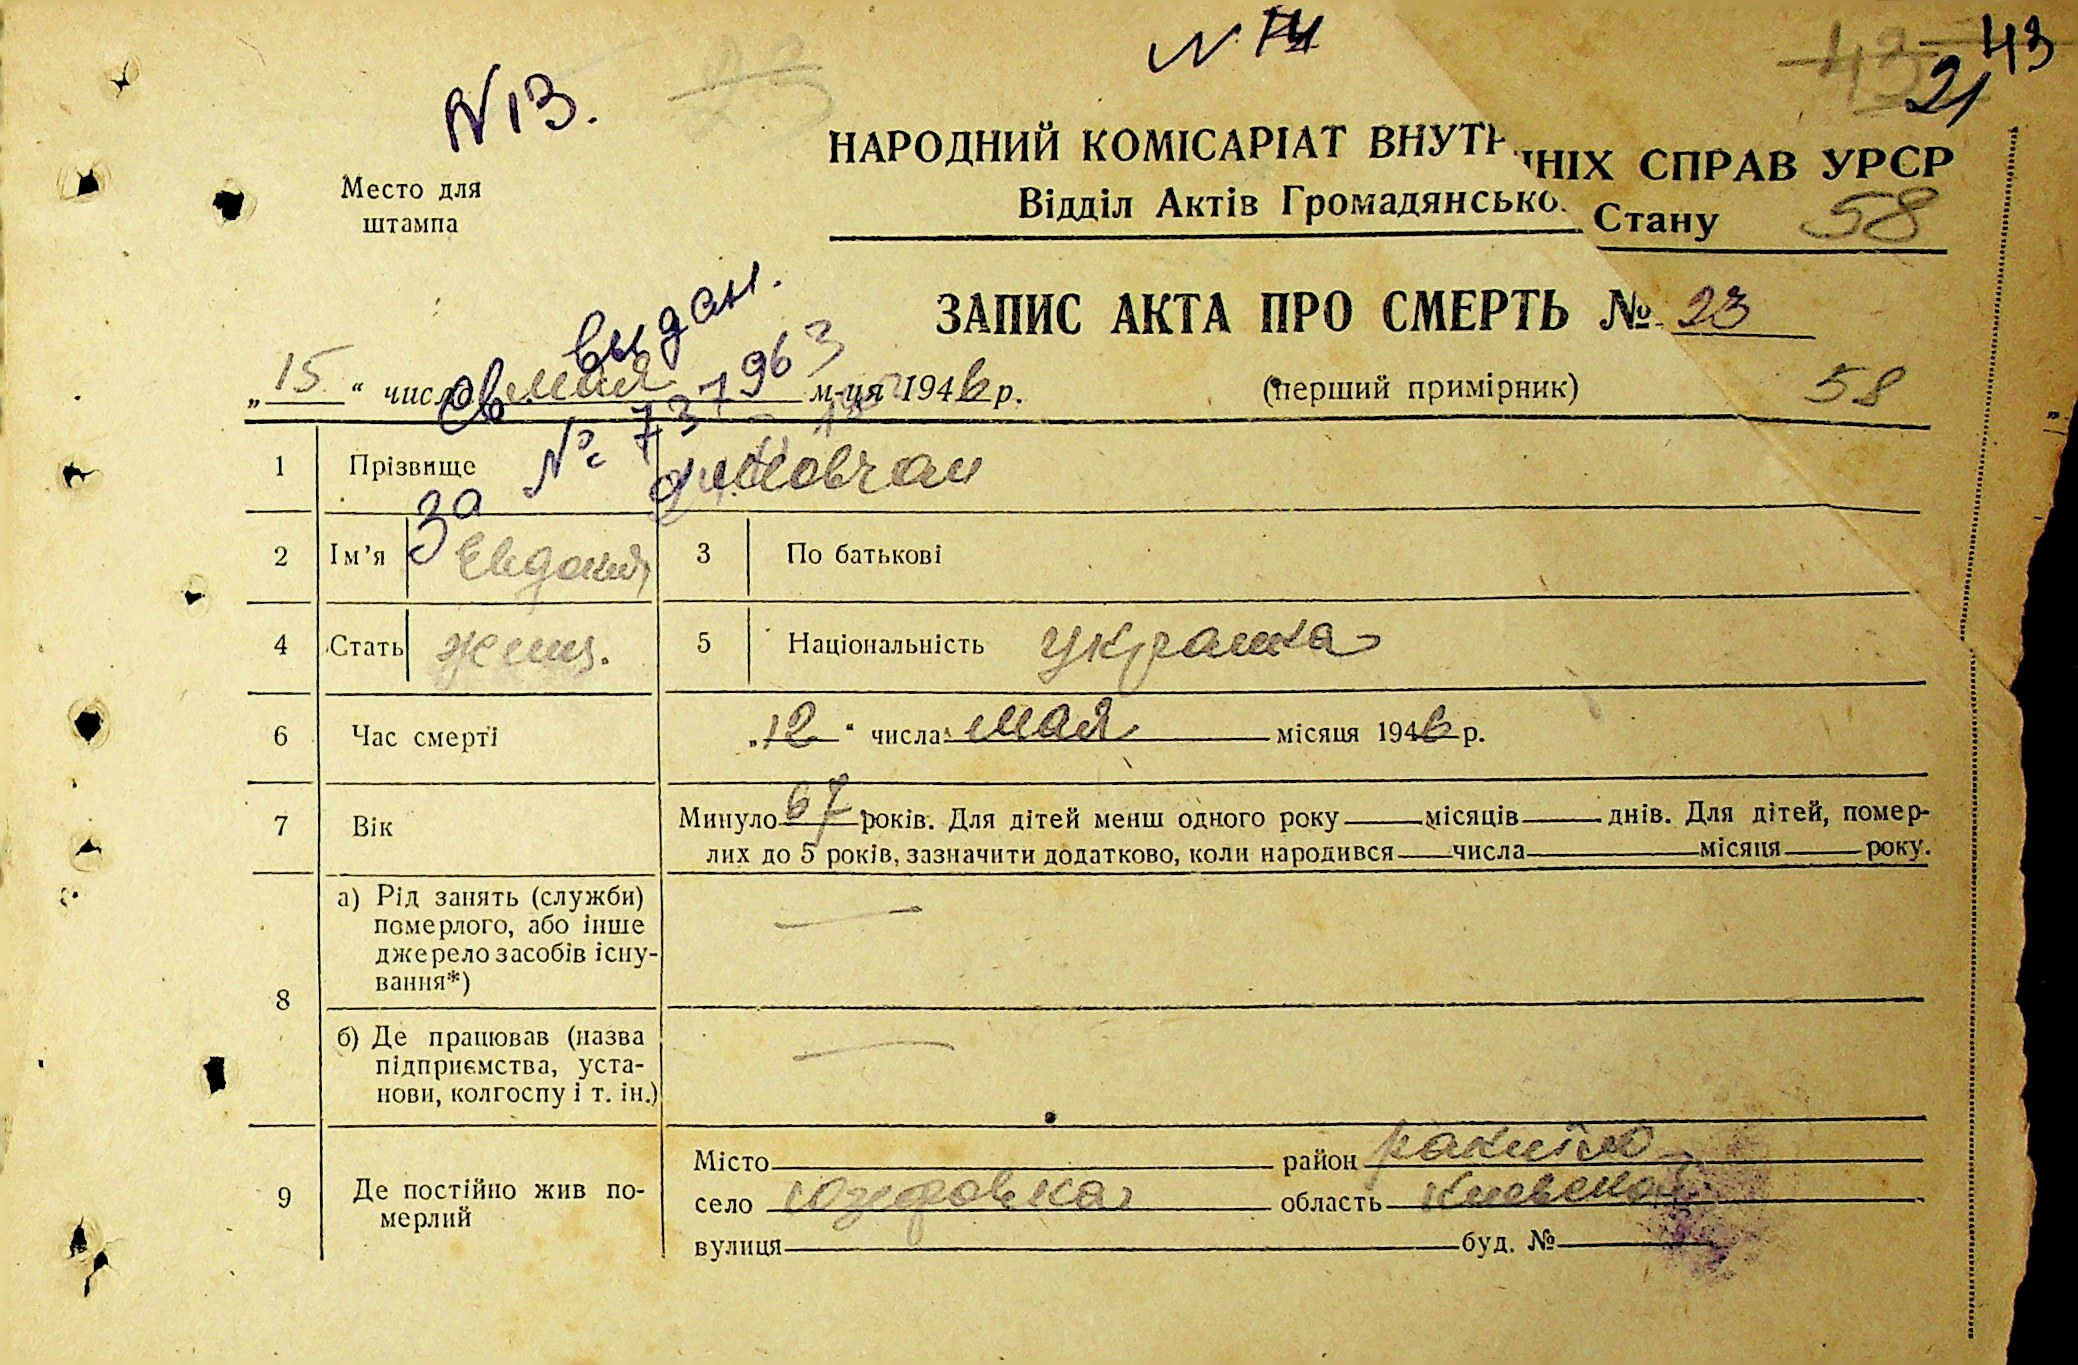 N 74
43
43
21
N 13.
НАРОДНИЙ КОМІСАРІАТ ВНУТР ШНІХ СПРАВ УРСР
Место для
штампа
Відділ Актів Громадянсько Стану
58
ЗАПИС АКТА ПРО СМЕРТЬ № 23
св выдан.
„15“ числа мая м-ця 1946 р.
(перший примірник)
58
за № 73 1963
1 Прізвище Мовчан
2 Ім’я Евдокия 3 По батькові
4 Стать женщ. 5 Національність украинка
6 Час смерті „12“ числа мая місяця 1946 р.
7 Вік Минуло 67 років. Для дітей менш одного року місяців днів. Для дітей, помер-
лих до 5 років, зазначити додатково, коли народився числа місяця року.
8 а) Рід занять (служби)
померлого, або інше
джерело засобів існу-
вання*)
б) Де працював (назва
підприємства, уста-
нови, колгоспу і т. ін.)
9 Де постійно жив по-
мерлий
Місто район
село Юзефовка область Киевская
вулиця буд. №